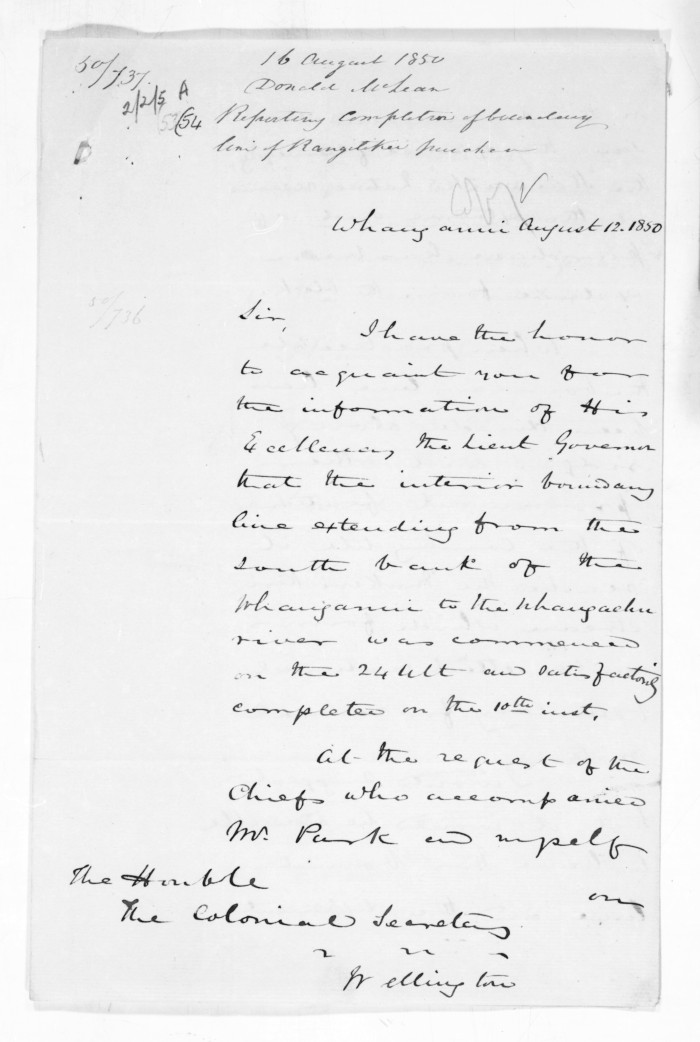 50/737.
2/2/5 A
53/54
16 August 1850
Donald McLean
Reporting completion of boundary
line of Rangitikei purchase
Whanganui August 12. 1850
50/736
Sir,
I have the honor
to acquaint you for
the information of His
Excellency the Lieut Governor
that the interior boundary
line extending from the
south bank of the
Whanganui to the Whangaehu
river was commenced
on the 24 Ult and satisfactorily
completed on the 10th inst.
At the request of the
Chiefs who accompanied
Mr. Park and myself
on
The Honble
The Colonial Secretary
Wellington